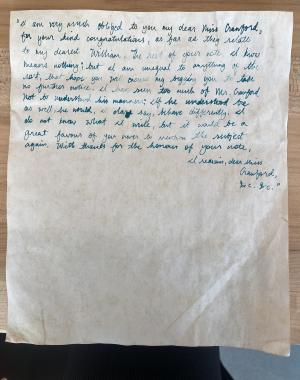 "I am very much obliged to you my dear Miss Crawford,
for your kind congratulations, as far as they relate
to my dearest William. The rest of your note I know
means nothing; but I am unequal to anything of the
sort, that hope you will excuse my begging you to take
no further notice. I had seen too much of Mr. Crawford
not to understand his manners; if he understood me
as well he would, I dare say, behave differently. I
do not know what I write, but it would be a
great favour of you never to mention the subject
again. With thanks for the honour of your note,
I remain, dear Miss
Crawford,
&c. &c."